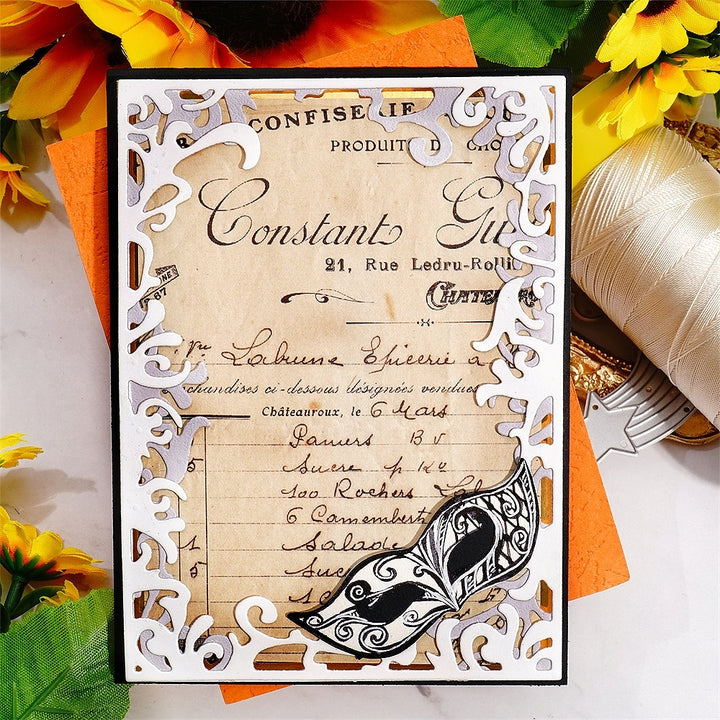 CONFISERIE
PRODUIT D CHO
Constant Gu
21, Rue Ledru-Rolli
CHATE
INES
87
Labrune Epicerie a
chandises ci-dessous désignées vendues
Châteauroux, le 6 Mars
Paniers B V
5 Sucre p Ko
100 Rochers
6 Camembert
1 Salade
5 Suc